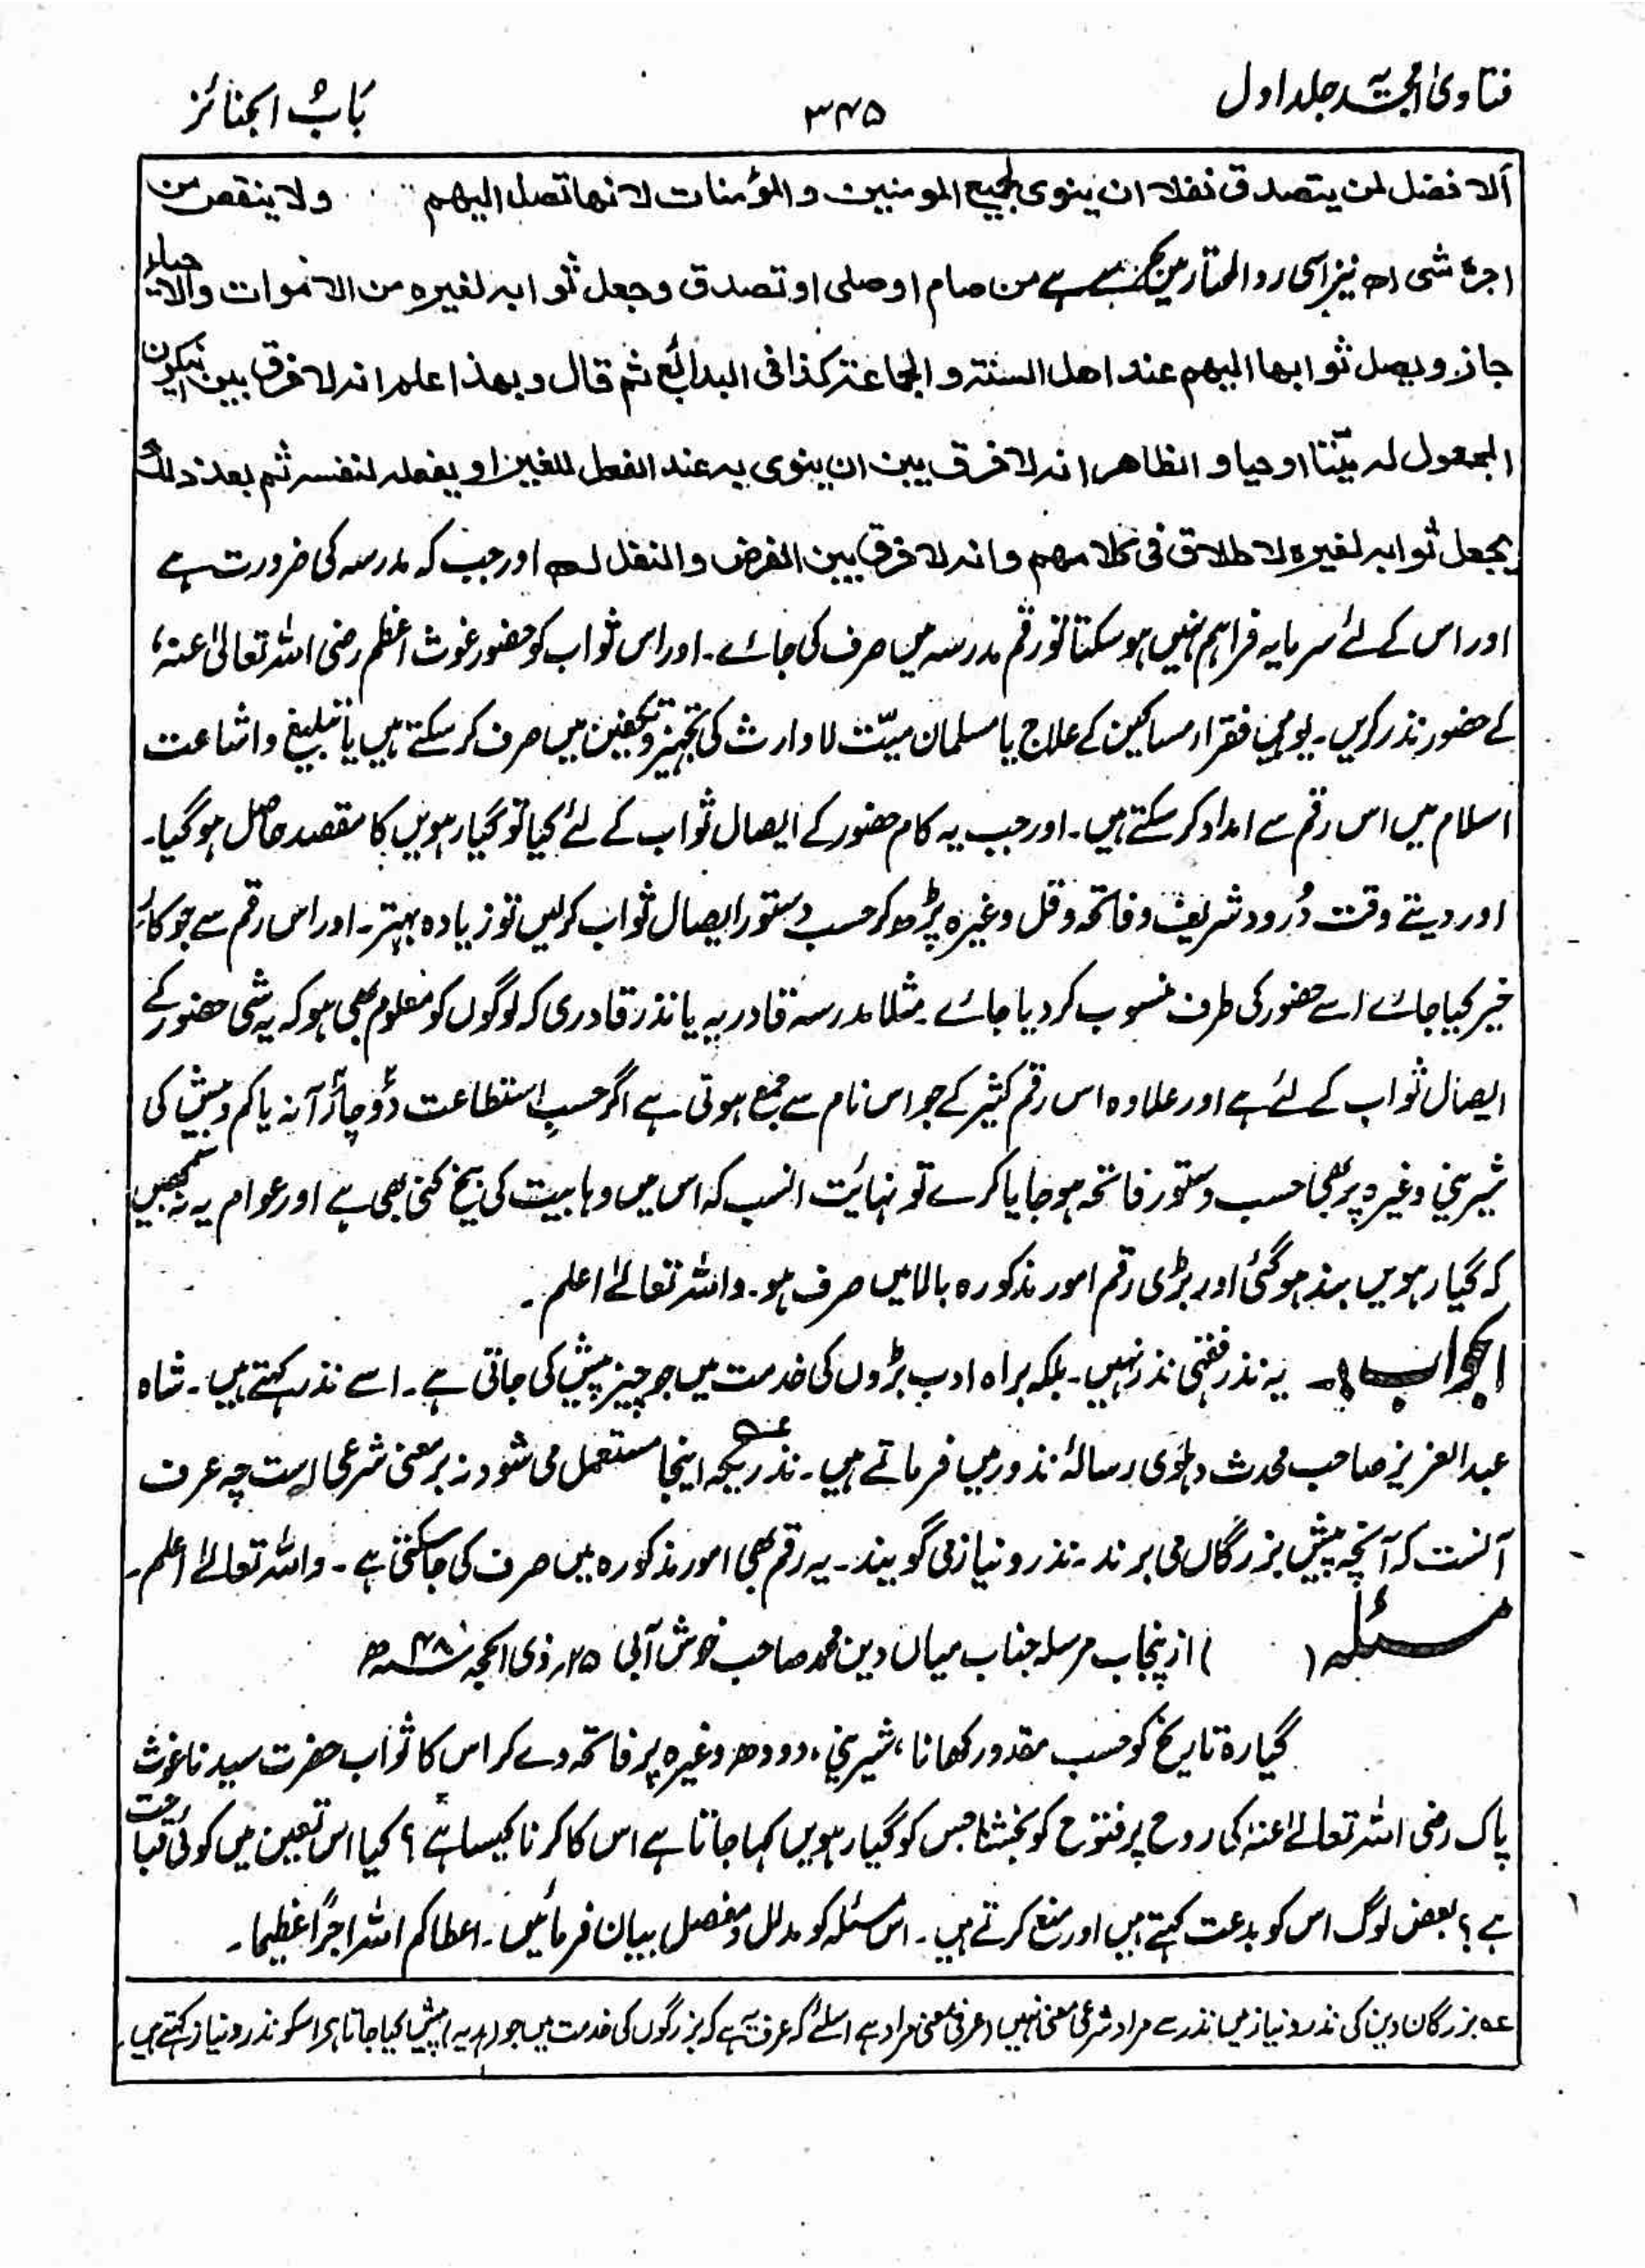 فتاویٰ امجدیہ جلد اول
۳۴۵
بَابُ الجنائز
الافضل لمن یتصدق نفلا ان ینوی لجمیع المومنین والمؤمنات لانها تصل الیهم ولا ینقص من
اجرہ شی اھ نیز اسی ردالمحتار میں بحر سے ہے من صام او صلی او تصدق وجعل ثوابه لغیرہ من الاموات والاحیاء
جاز ویصل ثوابها الیهم عند اهل السنة والجماعة کذا فی البدائع ثم قال وبهذا علم انه لا فرق بین ان یکون
المجعول له میّتا او حیا والظاهر انه لا فرق بین ان ینوی به عند الفعل للغیر او یفعله لنفسه ثم بعد ذلک
یجعل ثوابه لغیرہ لاطلاق فی کلامهم وانه لا فرق بین الفرض والنفل اھ اور جب کہ مدرسہ کی ضرورت ہے
اور اس کے لئے سرمایہ فراہم نہیں ہو سکتا تو رقم مدرسہ میں صرف کی جائے۔ اور اس ثواب کو حضور غوث اعظم رضی اللہ تعالیٰ عنہ،
کے حضور نذر کریں۔ یوہیں فقراء مساکین کے علاج یا مسلمان میّت لاوارث کی تجہیز و تکفین میں صرف کر سکتے ہیں یا تبلیغ و اشاعت
اسلام میں اس رقم سے امداد کر سکتے ہیں۔ اور جب یہ کام حضور کے ایصال ثواب کے لئے کیا تو گیارہویں کا مقصد حاصل ہو گیا۔
اور دیتے وقت دُرود شریف و فاتحہ و قل وغیرہ پڑھ کر حسب دستور ایصال ثواب کرلیں تو زیادہ بہتر۔ اور اس رقم سے جو کار
خیر کیا جائے اسے حضور کی طرف منسوب کر دیا جائے مثلا مدرسہ قادریہ یا نذر قادری کہ لوگوں کو معلوم بھی ہو کہ یہ شی حضور کے
ایصال ثواب کے لئے ہے اور علاوہ اس رقم کثیر کے جو اس نام سے جمع ہوتی ہے اگر حسبِ استطاعت دو چار آنہ یا کم و بیش کی
شیرینی وغیرہ پر بھی حسب دستور فاتحہ ہو جایا کرے تو نہایت انسب کہ اس میں وہابیت کی بیخ کنی بھی ہے اور عوام یہ نہ سمجھیں
کہ گیارہویں بند ہو گئی اور بڑی رقم امور مذکورہ بالا میں صرف ہو۔ واللہ تعالےٰ اعلم۔
الجواب:۔ یہ نذر فقہی نذر نہیں۔ بلکہ براہ ادب بڑوں کی خدمت میں جو چیز پیش کی جاتی ہے۔ اسے نذر کہتے ہیں۔ شاہ
عبدالعزیز صاحب محدث دہلوی رسالۂ نذور میں فرماتے ہیں۔ نذریکہ اینجا مستعمل می شود نہ بر معنی شرعی است چہ عرف عہ
آنست کہ آنچہ پیش بزرگاں می برند۔ نذر و نیاز می گویند۔ یہ رقم بھی امور مذکورہ میں صرف کی جا سکتی ہے۔ واللہ تعالےٰ اعلم۔
مسئلہ ( ) از پنجاب مرسلہ جناب میاں دین محمد صاحب خوش آبی ۲۵؍ ذی الحجہ ۴۸ھ
گیارہ تاریخ کو حسب مقدور کھانا، شیرینی، دودھ وغیرہ پر فاتحہ دے کر اس کا ثواب حضرت سیدنا غوث
پاک رضی اللہ تعالےٰ عنہ کی روح پر فتوح کو بخشنا جس کو گیارہویں کہا جاتا ہے اس کا کرنا کیسا ہے؟ کیا اس تعین میں کوئی قباحت
ہے؟ بعض لوگ اس کو بدعت کہتے ہیں اور منع کرتے ہیں۔ اس مسئلہ کو مدلل و مفصل بیان فرمائیں۔ اعطاکم اللہ اجرًا عظیما۔
عہ بزرگان دین کی نذر و نیاز میں نذر سے مراد شرعی معنی نہیں (عرفی معنی مراد ہے اسلئے کہ عرف یہ ہے کہ بزرگوں کی خدمت میں جو (ہدیہ) پیش کیا جاتا ہے اسکو نذر و نیاز کہتے ہیں۔